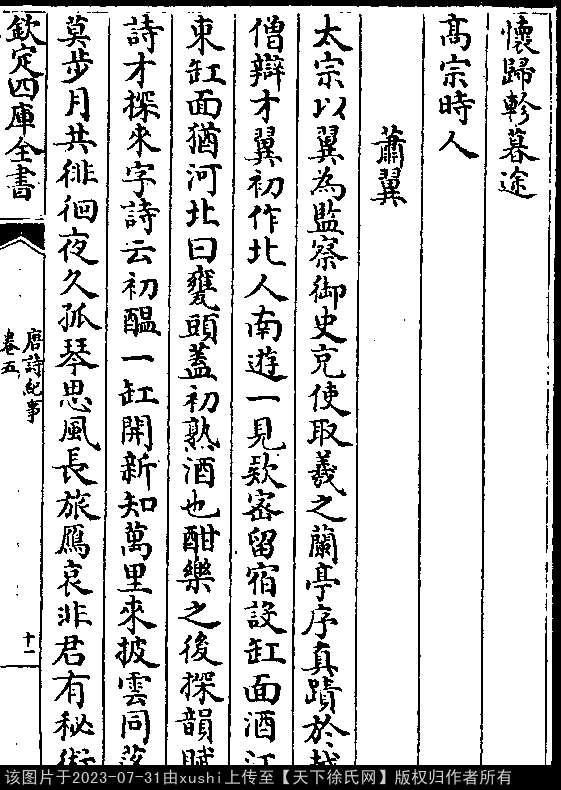 懷歸軫暮途
高宗時人
蕭翼
太宗以翼為監察御史充使取羲之蘭亭序真蹟於越
僧辯才翼初作北人南遊一見款密留宿設缸面酒江
東缸面猶河北曰甕頭蓋初熟酒也酣樂之後探韻賦
詩才探來字詩云初醖一缸開新知萬里來披雲同落
莫步月共徘徊夜久孤琴思風長旅鴈哀非君有秘術
欽定四庫全書
唐詩紀事
卷五
十一
该图片于2023-07-31由xushi上传至【天下徐氏网】版权归作者所有